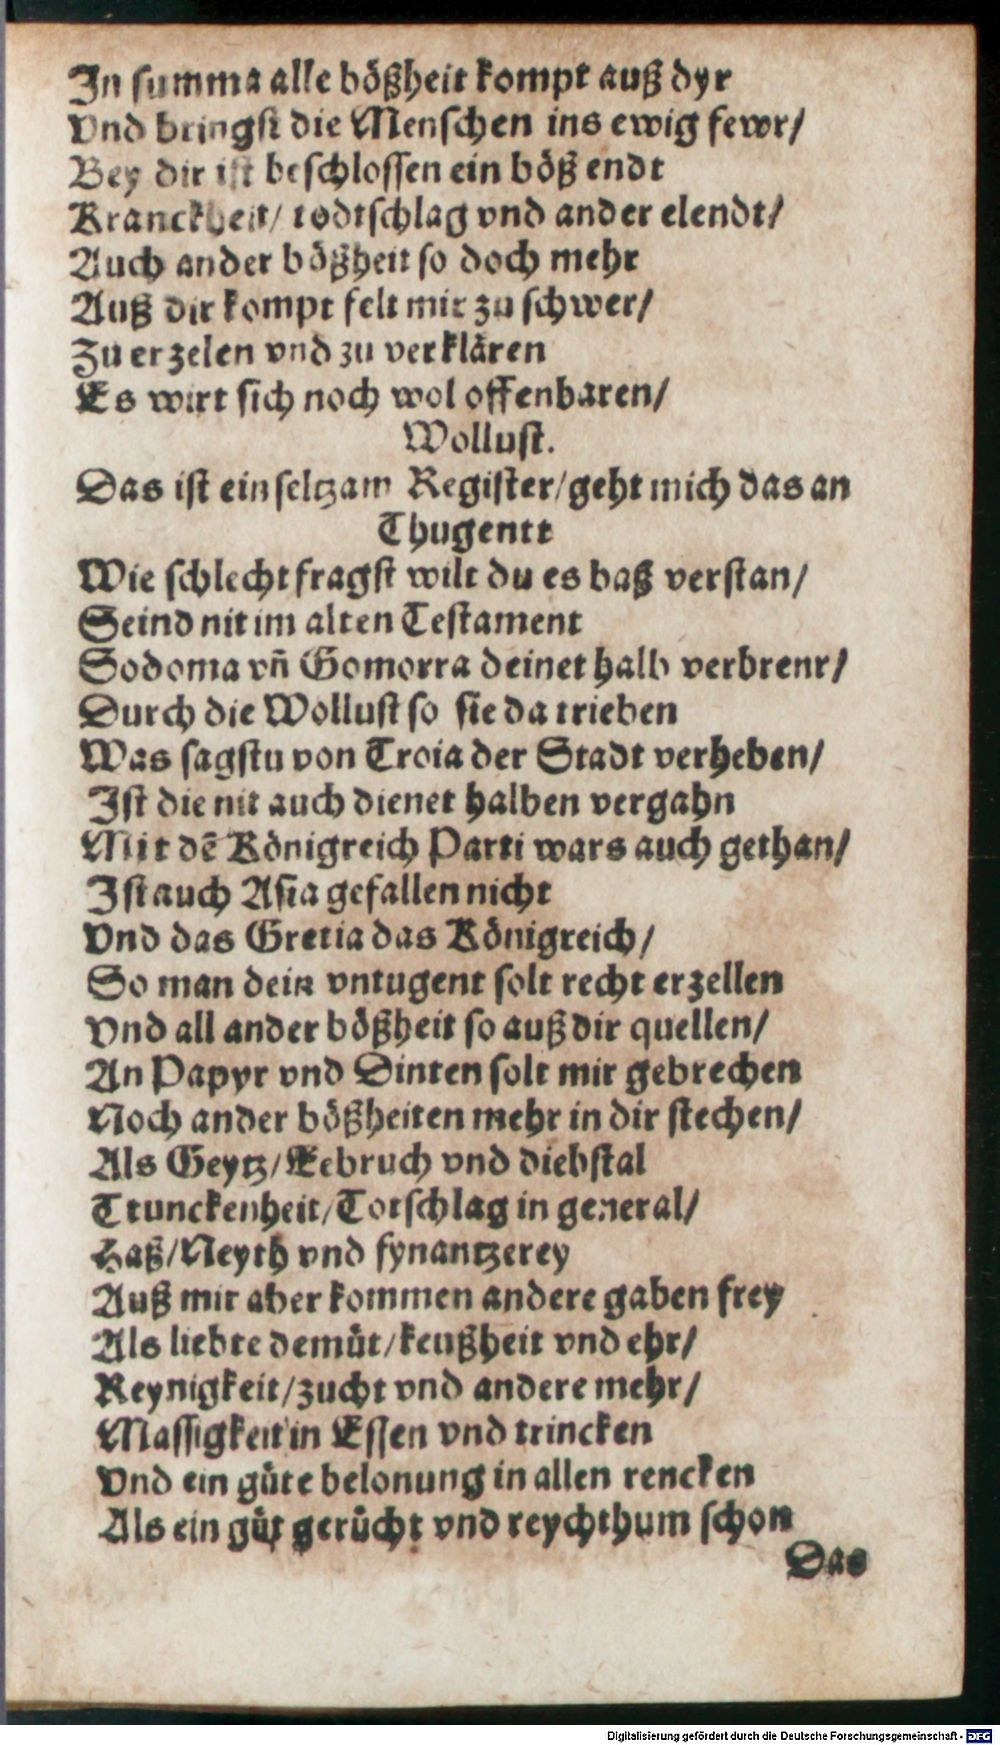 In summa alle bößheit kompt auß dyr
Vnd bringst die Menschen ins ewig fewr/
Bey dir ist beschlossen ein böß endt
Kranckheit/ todtschlag vnd ander elendt/
Auch ander bößheit so doch mehr
Auß dir kompt felt mir zu schwer/
Zu erzelen vnd zu verklären
Es wirt sich noch wol offenbaren/
Wollust.
Das ist ein seltzam Register/geht mich das an
Thugentt
Wie schlecht fragst wilt du es baß verstan/
Seind nit im alten Testament
Sodoma vñ Gomorra deinet halb verbrent/
Durch die Wollust so sie da trieben
Was sagstu von Troia der Stadt verheben/
Ist die nit auch dienet halben vergahn
Mit dẽ Königreich Parti wars auch gethan/
Ist auch Asia gefallen nicht
Vnd das Gretia das Königreich/
So man dein vntugent solt recht erzellen
Vnd all ander bößheit so auß dir quellen/
An Papyr vnd Dinten solt mir gebrechen
Noch ander bößheiten mehr in dir stechen/
Als Geytz/Eebruch vnd diebstal
Trunckenheit/Totschlag in general/
Haß/Neyth vnd fynantzerey
Auß mir aber kommen andere gaben frey
Als liebte demůt/keußheit vnd ehr/
Reynigkeit/zucht vnd andere mehr/
Massigkeit in Essen vnd trincken
Vnd ein gůte belonung in allen rencken
Als ein gůt gerücht vnd reychthum schon
Das
Digitalisierung gefördert durch die Deutsche Forschungsgemeinschaft - DFG